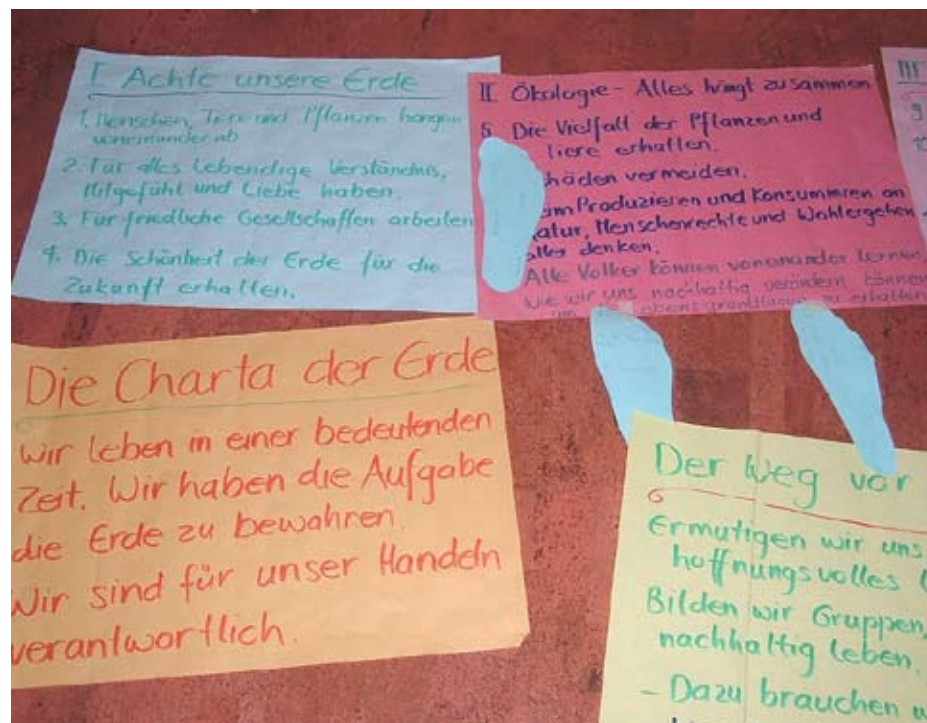 I Achte unsere Erde
1. Menschen, Tiere und Pflanzen hängen
voneinander ab
2. Für alles Lebendige Verständnis,
Mitgefühl und Liebe haben.
3. Für friedliche Gesellschaften arbeiten
4. Die Schönheit der Erde für die
Zukunft erhalten.
II Ökologie - Alles hängt zusammen
5. Die Vielfalt der Pflanzen und
Tiere erhalten.
häden vermeiden.
im Produzieren und Konsumieren an
atur, Menschenrechte und Wohlergehen
aller denken.
Alle Völker können voneinander lernen,
wie wir uns nachhaltig verändern können
um Lebensgrundlagen zu erhalten
III
9
10
Die Charta der Erde
Wir leben in einer bedeutenden
Zeit. Wir haben die Aufgabe
die Erde zu bewahren.
Wir sind für unser Handeln
verantwortlich.
Der Weg vor
Ermutigen wir uns
hoffnungsvolles
Bilden wir Gruppen,
nachhaltig leben.
- Dazu brauchen w